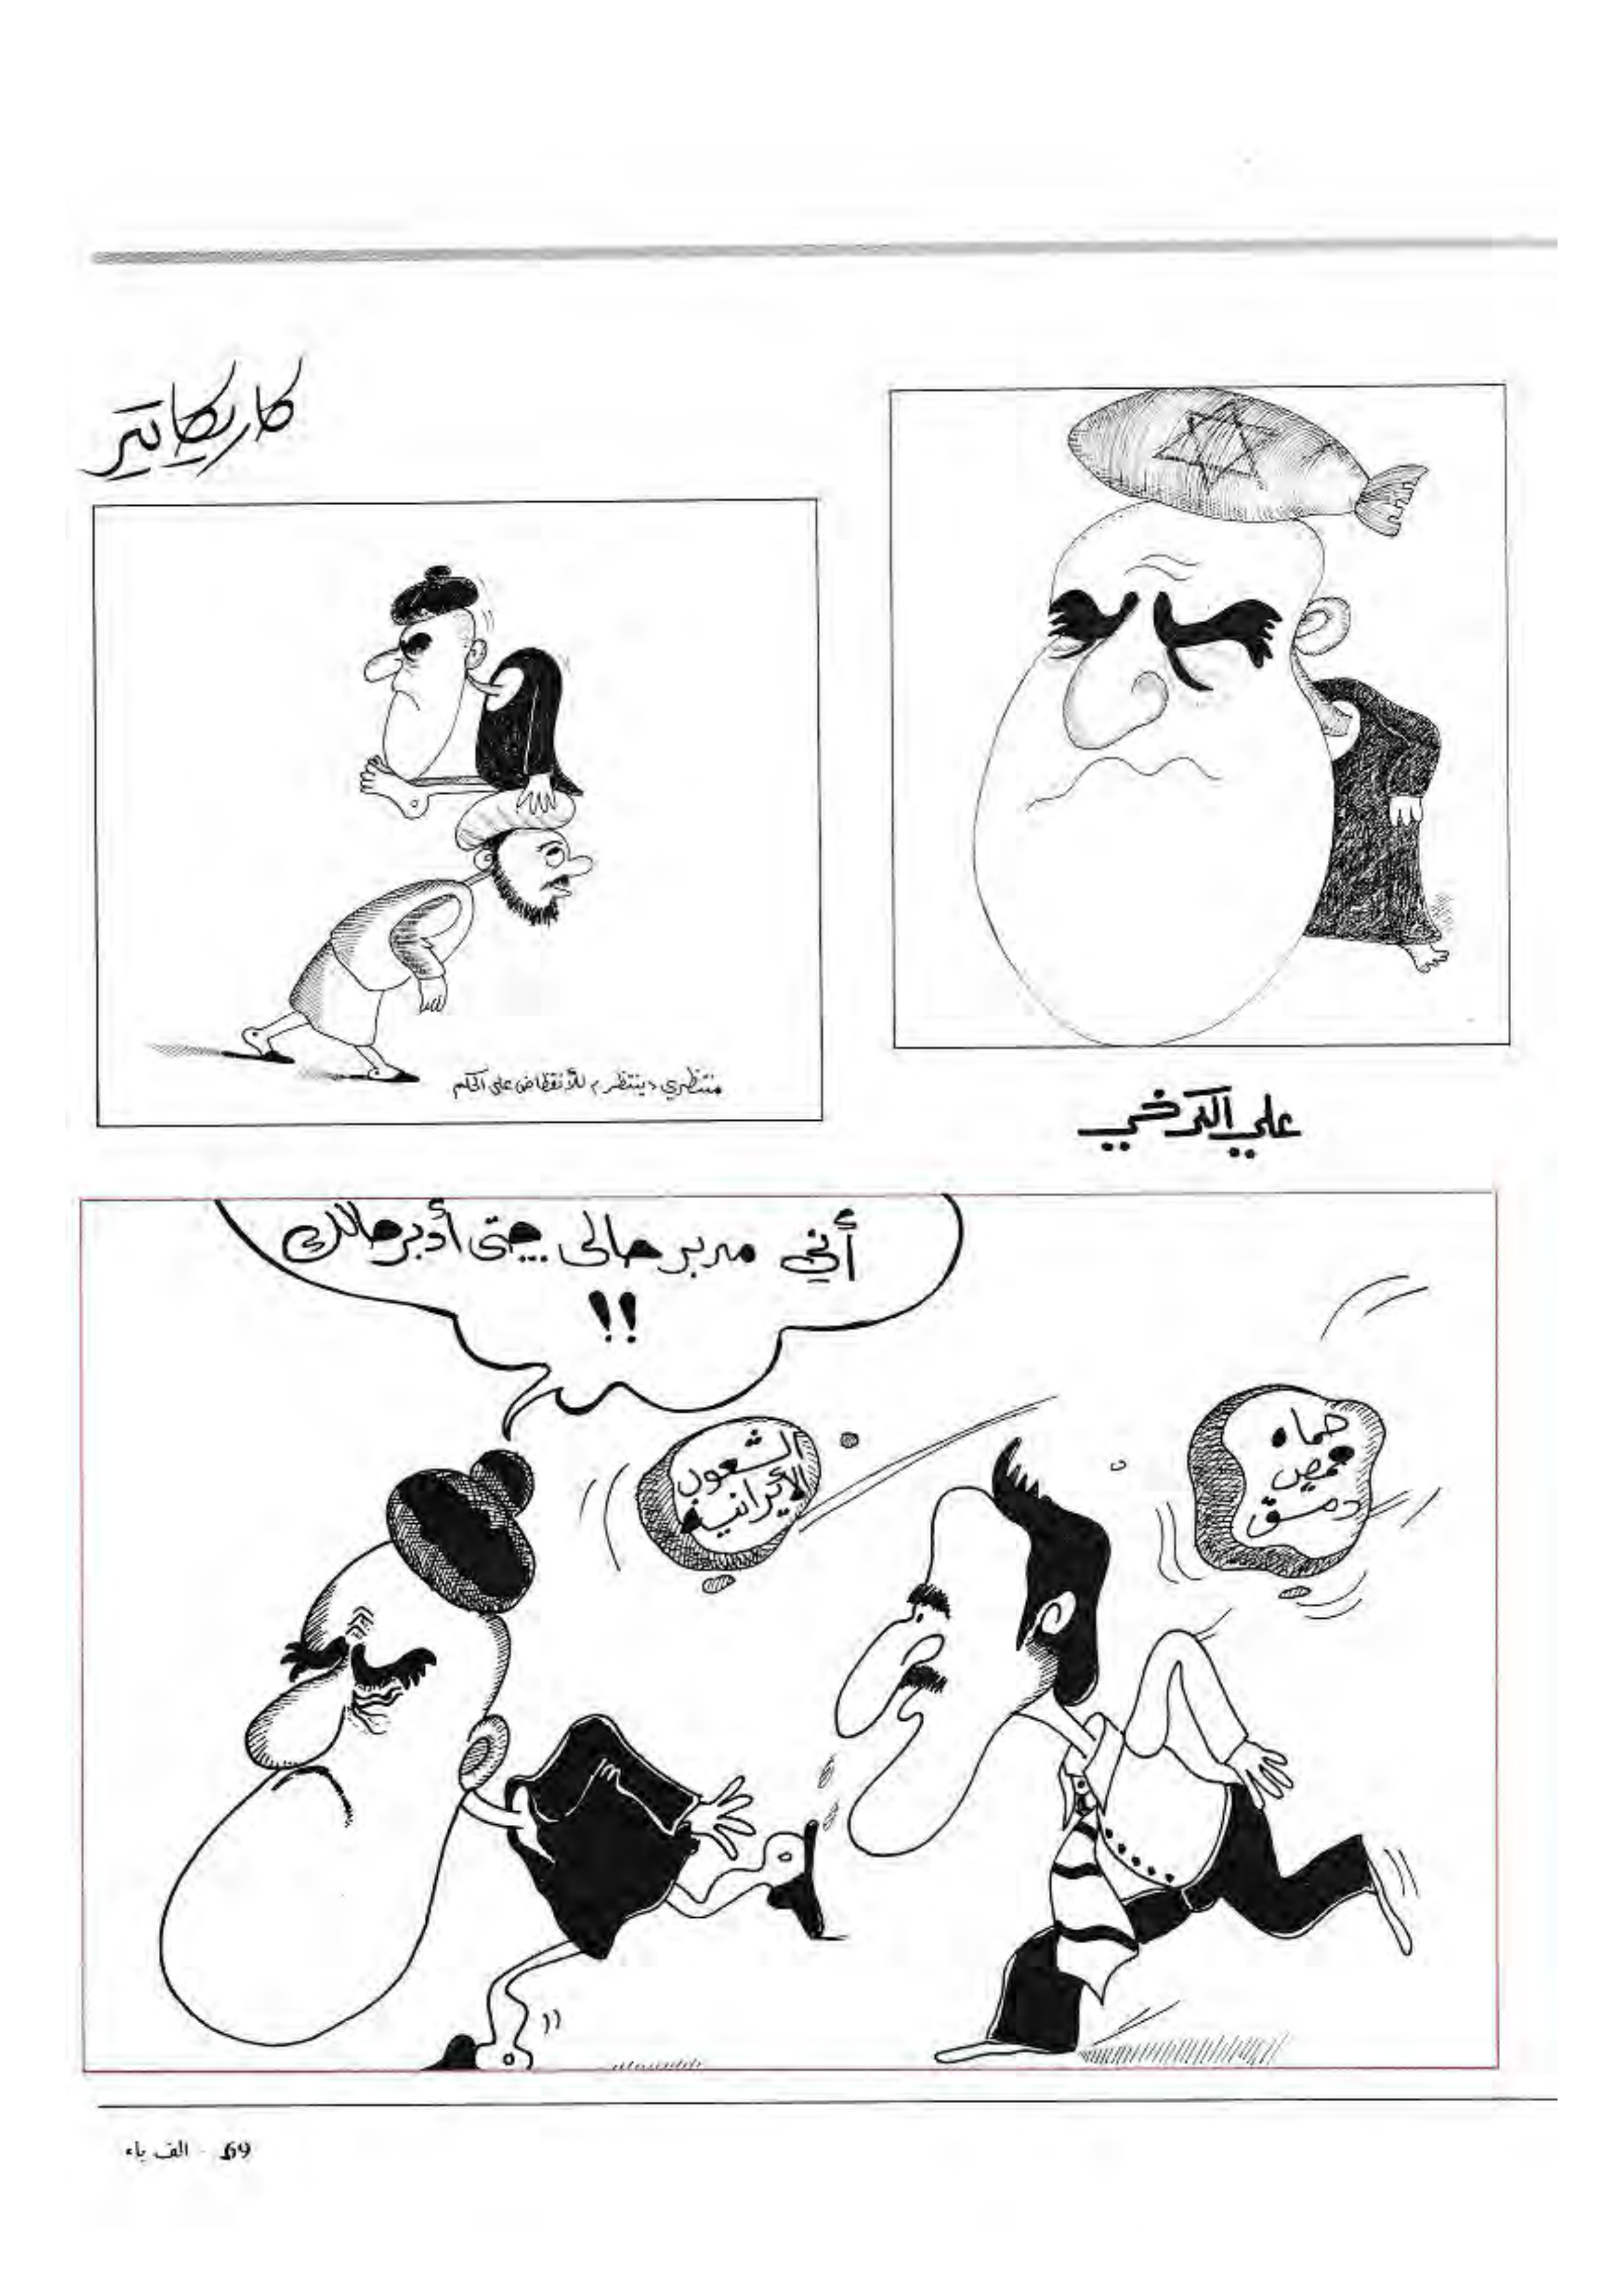 كاريكاتير
منتظري «ينتظر» للأنقظاض على الحكم
علي الكرخي
أني مدبر حالي ..حتى أدبر حالك
!!
الشعوب
الأيرانية
حماه
حمص
دمشق
69 - الف باء